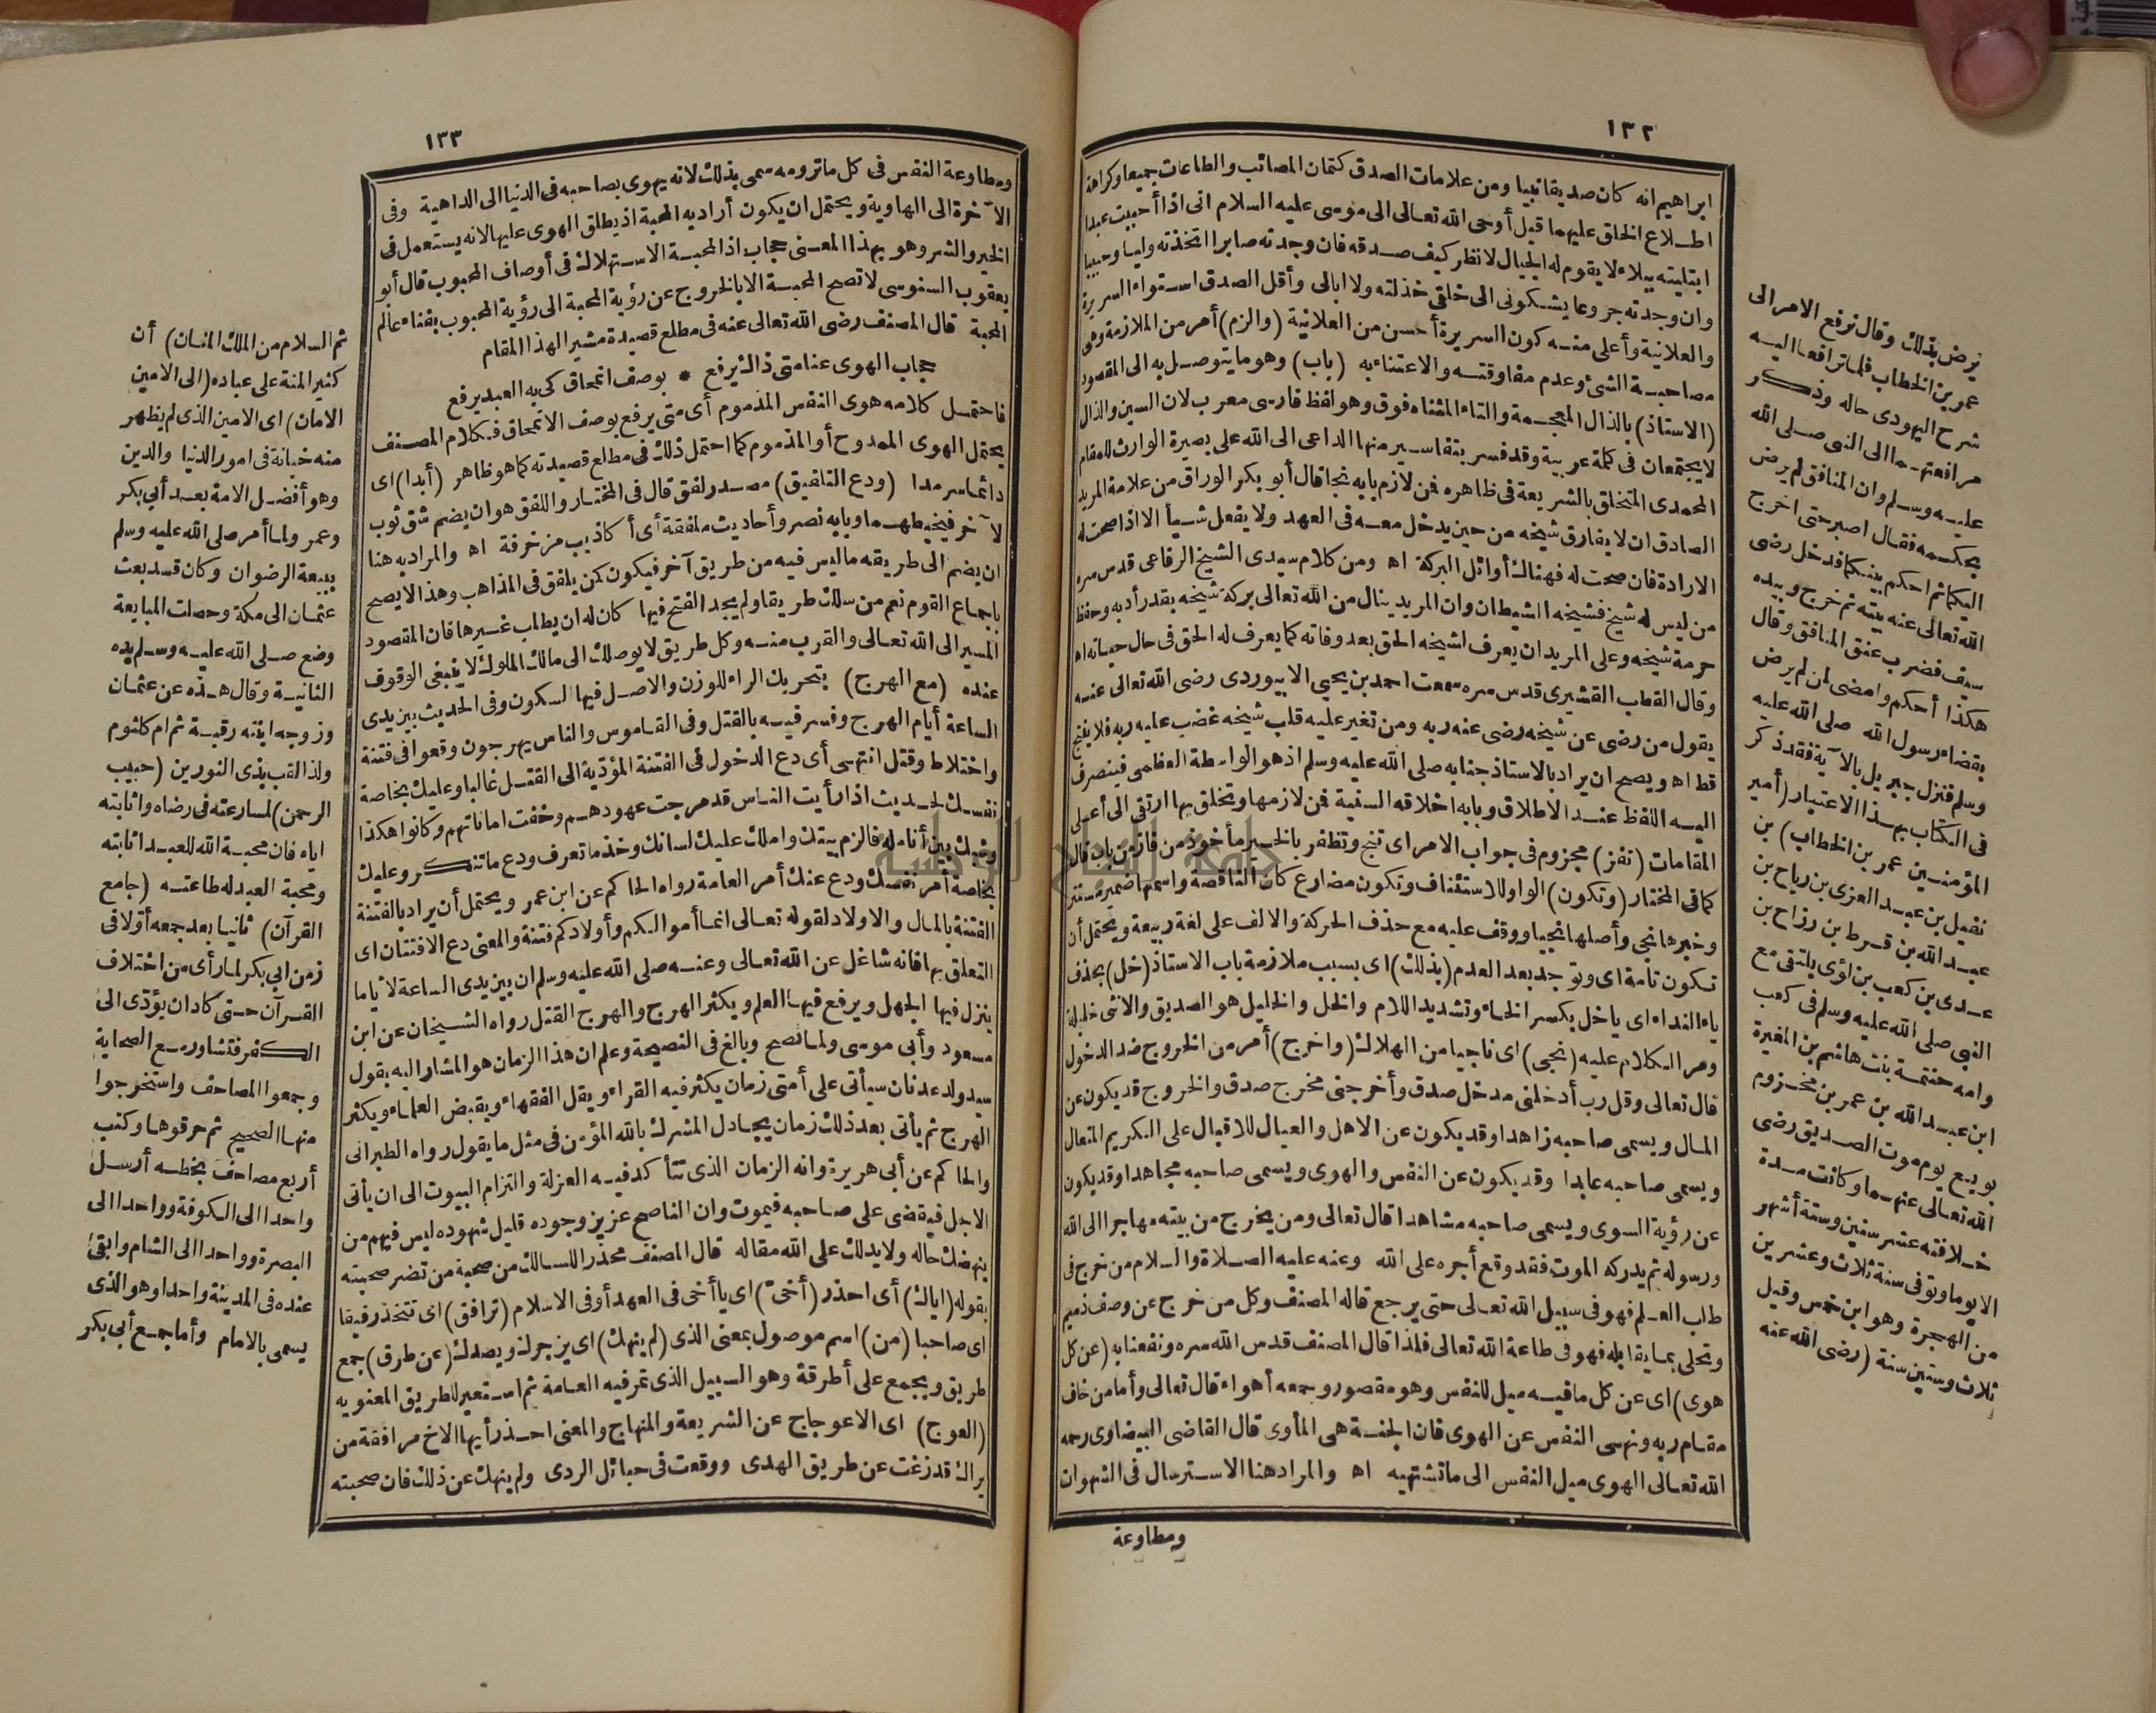 ١٣٢
ابراهيم انه كان صديقا نبيا ومن علامات الصدق كتمان المصائب والطاعات جميعا وكراهة
اطلاع الخلق عليهما قيل أوحى الله تعالى الى موسى عليه السلام انى اذا أحببت عبدا
ابتليته ببلاء لا يقوم له الجبال لانظر كيف صدقه فان وجدته صابرا اتخذته وليا وحبيبا
وان وجدته جزوعا يشكونى الى خلقى خذلته ولا ابالى وأقل الصدق استواء السريرة
والعلانية وأعلى منه كون السريرة أحسن من العلانية (والزم) أمر من الملازمة وهى
مصاحبة الشئ وعدم مفارقته والاعتناء به (باب) وهو ما يتوصل به الى المقصود
(الاستاذ) بالذال المعجمة والتاء المثناه فوق وهو لفظ فارسى معرب لان السين والذال
لا يجتمعان فى كلمة عربية وقد فسر بتفاسير منها الداعى الى الله على بصيرة الوارث للمقام
المحمدى المتخلق بالشريعة فى ظاهره فمن لازم بابه نجا قال أبو بكر الوراق من علامة المريد
الصادق ان لا يفارق شيخه من حين يدخل معه فى العهد ولا يفعل شيأ الا اذا صحت له
الارادة فان صحت له فهنالك أوائل البركة اه ومن كلام سيدى الشيخ الرفاعى قدس سره
من ليس له شيخ فشيخه الشيطان وان المريد ينال من الله تعالى بركة شيخه بقدر أدبه وحفظ
حرمة شيخه وعلى المريد ان يعرف لشيخه الحق بعد وفاته كما يعرف له الحق فى حال حياته اه
وقال القطب القشيرى قدس سره سمعت احمد بن يحيى الابيوردى رضى الله تعالى عنه
يقول من رضى عن شيخه رضى عنه ربه ومن تغير عليه قلب شيخه غضب عليه ربه فلا يفتح
قط اه ويصح ان يراد بالاستاذ جنابه صلى الله عليه وسلم اذ هو الواسطة العظمى فينصرف
اليه اللفظ عند الاطلاق وبابه اخلاقه السنية فمن لازمها وتخلق بها ارتقى الى أعلى
المقامات (تفز) مجزوم فى جواب الامر اى تنج وتظفر بالخير مأخوذ من فاز من باب قال
كما فى المختار (وتكون) الواو للاستئناف وتكون مضارع كان الناقصة واسمها ضمير مستتر
وخبرها نجى وأصلها نجيا ووقف عليه مع حذف الحركة والالف على لغة ربيعة ويحتمل أن
تكون تامة اى وتوجد بعد العدم (بذلك) اى بسبب ملازمة باب الاستاذ (خل) بحذف
ياء النداء اى يا خل بكسر الخاء وتشديد اللام والخل والخليل هو الصديق والانثى خليلة
ومر الكلام عليه (نجى) اى ناجيا من الهلاك (واخرج) أمر من الخروج ضد الدخول
قال تعالى وقل رب أدخلنى مدخل صدق وأخرجنى مخرج صدق والخروج قد يكون عن
المال ويسمى صاحبه زاهدا وقد يكون عن الاهل والعيال للاقبال على الكريم المتعال
ويسمى صاحبه عابدا وقد يكون عن النفس والهوى ويسمى صاحبه مجاهدا وقد يكون
عن رؤية السوى ويسمى صاحبه مشاهدا قال تعالى ومن يخرج من بيته مهاجرا الى الله
ورسوله ثم يدركه الموت فقد وقع أجره على الله وعنه عليه الصلاة والسلام من خرج فى
طلب العلم فهو فى سبيل الله تعالى حتى يرجع قاله المصنف وكل من خرج عن وصف ذميم
وتحلى بما يقابله فهو فى طاعة الله تعالى فلذا قال المصنف قدس الله سره ونفعنا به (عن كل
هوى) اى عن كل ما فيه ميل للنفس وهو مقصور وجمعه أهواء قال تعالى وأما من خاف
مقام ربه ونهى النفس عن الهوى فان الجنة هى المأوى قال القاضى البيضاوى رحمه
الله تعالى الهوى ميل النفس الى ما تشتهيه اه والمراد هنا الاسترسال فى الشهوات
ومطاوعة
نرض بذلك وقال نرفع الامر الى
عمر بن الخطاب فلما ترافعا اليه
شرح اليهودى حاله وذكر
مرافعتهما الى النبى صلى الله
عليه وسلم وان المنافق لم يرض
بحكمه فقال اصبر حتى اخرج
اليكما ثم احكم بينكما فدخل رضى
الله تعالى عنه بيته ثم خرج وبيده
سيف فضرب عنق المنافق وقال
هكذا أحكم وامضى لمن لم يرض
بقضاء رسول الله صلى الله عليه
وسلم فنزل جبريل بالآية فقد ذكر
فى الكتاب بهذا الاعتبار (أمير
المؤمنين عمر بن الخطاب) بن
نفيل بن عبد العزى بن رياح بن
عبد الله بن قرط بن رزاح بن
عدى بن كعب بن لؤى يلتقى مع
النبى صلى الله عليه وسلم فى كعب
وامه حنتمة بنت هاشم بن المغيرة
ابن عبد الله بن عمر بن مخزوم
بويع يوم موت الصديق رضى
الله تعالى عنهما وكانت مدة
خلافته عشر سنين وستة أشهر
الا يوما وتوفى سنة ثلاث وعشرين
من الهجرة وهو ابن خمس وقيل
ثلاث وستين سنة (رضى الله عنه
١٣٣
ومطاوعة النفس فى كل ما ترومه سمى بذلك لانه يهوى بصاحبه فى الدنيا الى الداهية وفى
الآخرة الى الهاوية ويحتمل ان يكون أراد به المحبة اذ يطلق الهوى عليها لانه يستعمل فى
الخير والشر وهو بهذا المعنى حجاب اذ المحبة الاستهلاك فى أوصاف المحبوب قال أبو
يعقوب السنوسى لا تصح المحبة الا بالخروج عن رؤية المحبة الى رؤية المحبوب بفناء عالم
المحبة قال المصنف رضى الله تعالى عنه فى مطلع قصيدة مشيرا لهذا المقام
حجاب الهوى عنا متى ذاك يرفع * بوصف انمحاق كى به العبد يرفع
فاحتمل كلامه هوى النفس المذموم أى متى يرفع بوصف الانمحاق فكلام المصنف
يحتمل الهوى الممدوح أو المذموم كما احتمل ذلك فى مطلع قصيدته كما هو ظاهر (أبدا) اى
دائما سرمدا (ودع التلفيق) مصدر لفق قال فى المختار واللفق هو ان يضم شق ثوب
لآخر فيخيطهما وبابه نصر وأحاديث ملفقة أى أكاذيب مزخرفة اه والمراد به هنا
ان يضم الى طريقه ما ليس فيه من طريق آخر فيكون كمن يلفق فى المذاهب وهذا لا يصح
باجماع القوم نعم من سلك طريقا ولم يجد الفتح فيها كان له ان يطلب غيرها فان المقصود
المسير الى الله تعالى والقرب منه وكل طريق لا يوصلك الى مالك الملوك لا ينبغى الوقوف
عنده (مع الهرج) بتحريك الراء للوزن والاصل فيها السكون وفى الحديث بين يدى
الساعة أيام الهرج وفسر فيه بالقتل وفى القاموس والناس يهرجون وقعوا فى فتنة
واختلاط وقتل انتهى أى دع الدخول فى الفتنة المؤدية الى القتل غالبا وعليك بخاصة
نفسك لحديث اذا رأيت الناس قد مرجت عهودهم وخفت اماناتهم وكانوا هكذا
وشبك بين أنامله فالزم بيتك واملك عليك لسانك وخذ ما تعرف ودع ما تنكر وعليك
بخاصة أمر نفسك ودع عنك أمر العامة رواه الحاكم عن ابن عمر ويحتمل أن يراد بالفتنة
الفتنة بالمال والاولاد لقوله تعالى انما أموالكم وأولادكم فتنة والمعنى دع الافتتان اى
التعلق بها فانه شاغل عن الله تعالى وعنه صلى الله عليه وسلم ان بين يدى الساعة لأياما
ينزل فيها الجهل ويرفع فيها العلم ويكثر الهرج والهرج القتل رواه الشيخان عن ابن
مسعود وأبى موسى ولما نصح وبالغ فى النصيحة وعلم ان هذا الزمان هو المشار اليه بقول
سيد ولد عدنان سيأتى على أمتى زمان يكثر فيه القراء ويقل الفقهاء ويقبض العلماء ويكثر
الهرج ثم يأتى بعد ذلك زمان يجادل المشرك بالله المؤمن فى مثل ما يقول رواه الطبرانى
والحاكم عن أبى هريرة وانه الزمان الذى تتأكد فيه العزلة والتزام البيوت الى ان يأتى
الاجل فيقضى على صاحبه فيموت وان الناصح عزيز وجوده قليل شهوده ليس فيهم من
ينهضك حاله ولا يدلك على الله مقاله قال المصنف محذرا للسالك من صحبة من تضر صحبته
بقوله (اياك) أى احذر (أخى) اى يا أخى فى العهد أو فى الاسلام (ترافق) اى تتخذ رفيقا
اى صاحبا (من) اسم موصول بمعنى الذى (لم ينهك) اى يزجرك ويصدك (عن طرق) جمع
طريق ويجمع على أطرقة وهو السبيل الذى تمر فيه العامة ثم استعير للطريق المعنويه
(العوج) اى الاعوجاج عن الشريعة والمنهاج والمعنى احذر أيها الاخ مرافقة من
يراك قد زغت عن طريق الهدى ووقعت فى حبائل الردى ولم ينهك عن ذلك فان صحبته
ثم السلام من الملك المنان) أى
كثير المنة على عباده (الى الامين
الامان) اى الامين الذى لم يظهر
منه خيانة فى امور الدنيا والدين
وهو أفضل الامة بعد أبى بكر
وعمر ولما أمر صلى الله عليه وسلم
ببيعة الرضوان وكان قد بعث
عثمان الى مكة وحصلت المبايعة
وضع صلى الله عليه وسلم يده
الثانية وقال هذه عن عثمان
وزوجه ابنته رقية ثم ام كلثوم
ولذا لقب بذى النورين (حبيب
الرحمن) لمسارعته فى رضاه واثابته
اياه فان محبة الله للعبد اثابته
ومحبة العبد له طاعته (جامع
القرآن) ثانيا بعد جمعه أولا فى
زمن ابى بكر لما رأى من اختلاف
القرآن حتى كاد ان يؤدى الى
الكفر فتشاور مع الصحابة
وجمعوا المصاحف واستخرجوا
منها الصحيح ثم حرقوها وكتب
أربع مصاحف بخطه أرسل
واحدا الى الكوفة وواحدا الى
البصرة وواحدا الى الشام وابقى
عنده فى المدينة واحدا وهو الذى
يسمى بالامام وأما جمع أبى بكر